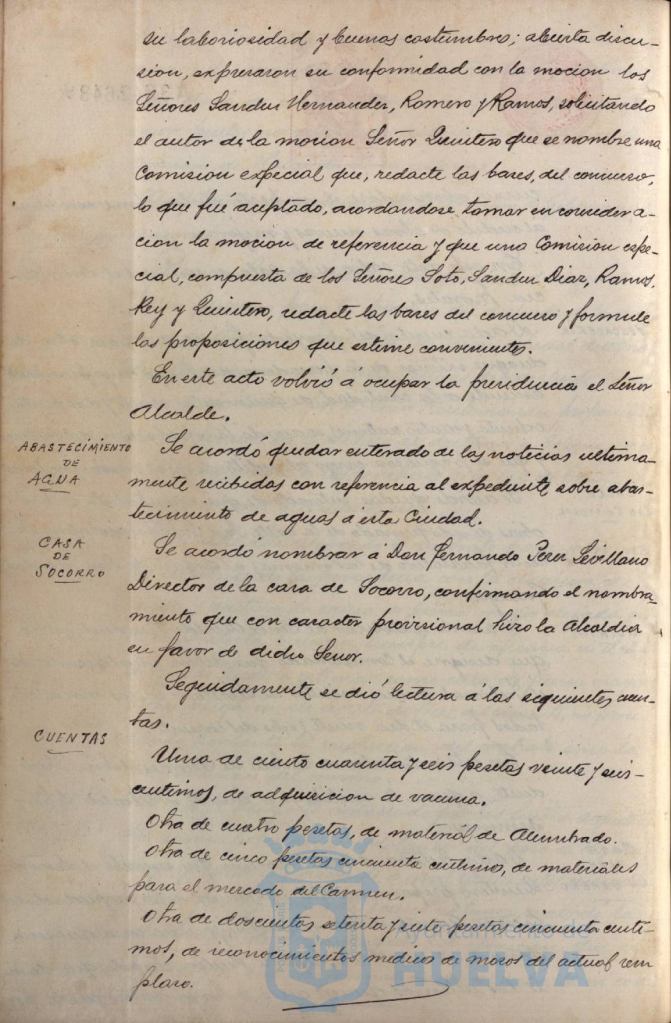 su laboriosidad y buenas costumbres; abierta discu-
sion, expresaron su conformidad con la mocion los
Señores Sanchez Hernandez, Romero y Ramos, solicitando
el autor de la mocion Señor Quintero que se nombre una
Comision especial que, redacte las bases, del concurso,
lo que fué aceptado, acordandose tomar en consider a-
cion la mocion de referencia y que una Comision espe-
cial, compuesta de los Señores Soto, Sanchez Diaz, Ramos,
Rey y Quintero, redacte las bases del concurso y formule
las proposiciones que estime convenientes.
En este acto volvió á ocupar la presidencia el Señor
Alcalde.
ABASTECIMIENTO
DE
AGUA
Se acordó quedar enterado de las noticias ultima-
mente recibidas con referencia al expediente sobre abas-
tecimiento de aguas á esta Ciudad.
CASA
DE
SOCORRO
Se acordó nombrar á Don Fernando Perez Sevillano
Director de la casa de Socorro, confirmando el nombra-
miento que con caracter provisional hizo la Alcaldia
en favor de dicho Señor.
Seguidamente se dió lectura á las siguientes cuen-
tas.
CUENTAS
Una de ciento cuarenta y seis pesetas veinte y seis
centimos, de adquisicion de vacuna.
Otra de cuatro pesetas, de material de Alumbrado.
Otra de cinco pesetas cincuenta centimos, de materiales
para el mercado del Carmen.
Otra de doscientas setenta y siete pesetas cincuenta centi-
mos, de reconocimientos medicos de mozos del actual reem
plazo.
Ayuntamiento de
HUELVA